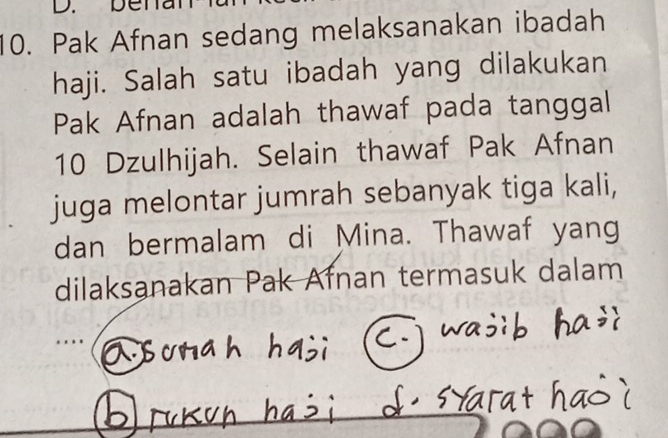 10. Pak Afnan sedang melaksanakan ibadah
haji. Salah satu ibadah yang dilakukan
Pak Afnan adalah thawaf pada tanggal
10 Dzulhijah. Selain thawaf Pak Afnan
juga melontar jumrah sebanyak tiga kali,
dan bermalam di Mina. Thawaf yang
dilaksanakan Pak Afnan termasuk dalam
.... a. sunah haji c. wajib haji
b rukun haji d. syarat haji